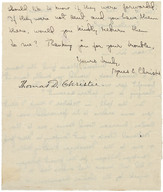 should like to know if they were forwarded.
If they were not sent, and you have them
there, would you kindly return them
to me? Thanking you for your trouble,
Yours truly,
Thomas D. Christie